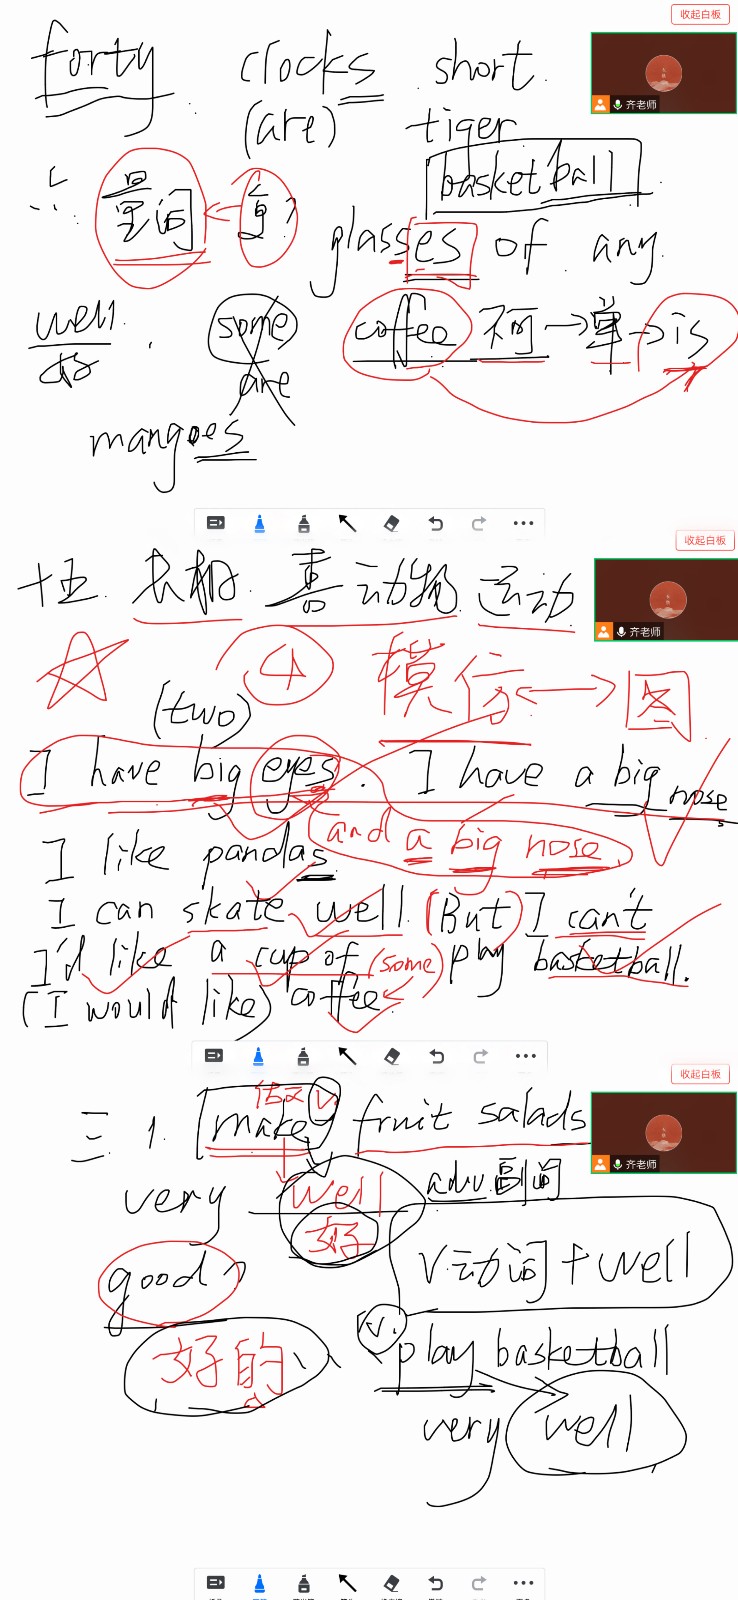 收起白板
forty clocks short
(are) tiger
齐老师
basketball
量词
glasses of any
well some coffee 不可→单→is
are
mangoes
收起白板
十五. 长相 喜 动物 运动
齐老师
4 模仿 ↔ 图
(two)
I have big eyes. I have a big nose
and a big nose
I like pandas
I can skate well. (But) I can't
I'd like a cup of (some) play basketball.
(I would like) coffee.
收起白板
v.
三 1. make fruit salads
齐老师
very well adv.副词
好
good
v动词+well
好的
v.
play basketball
very well